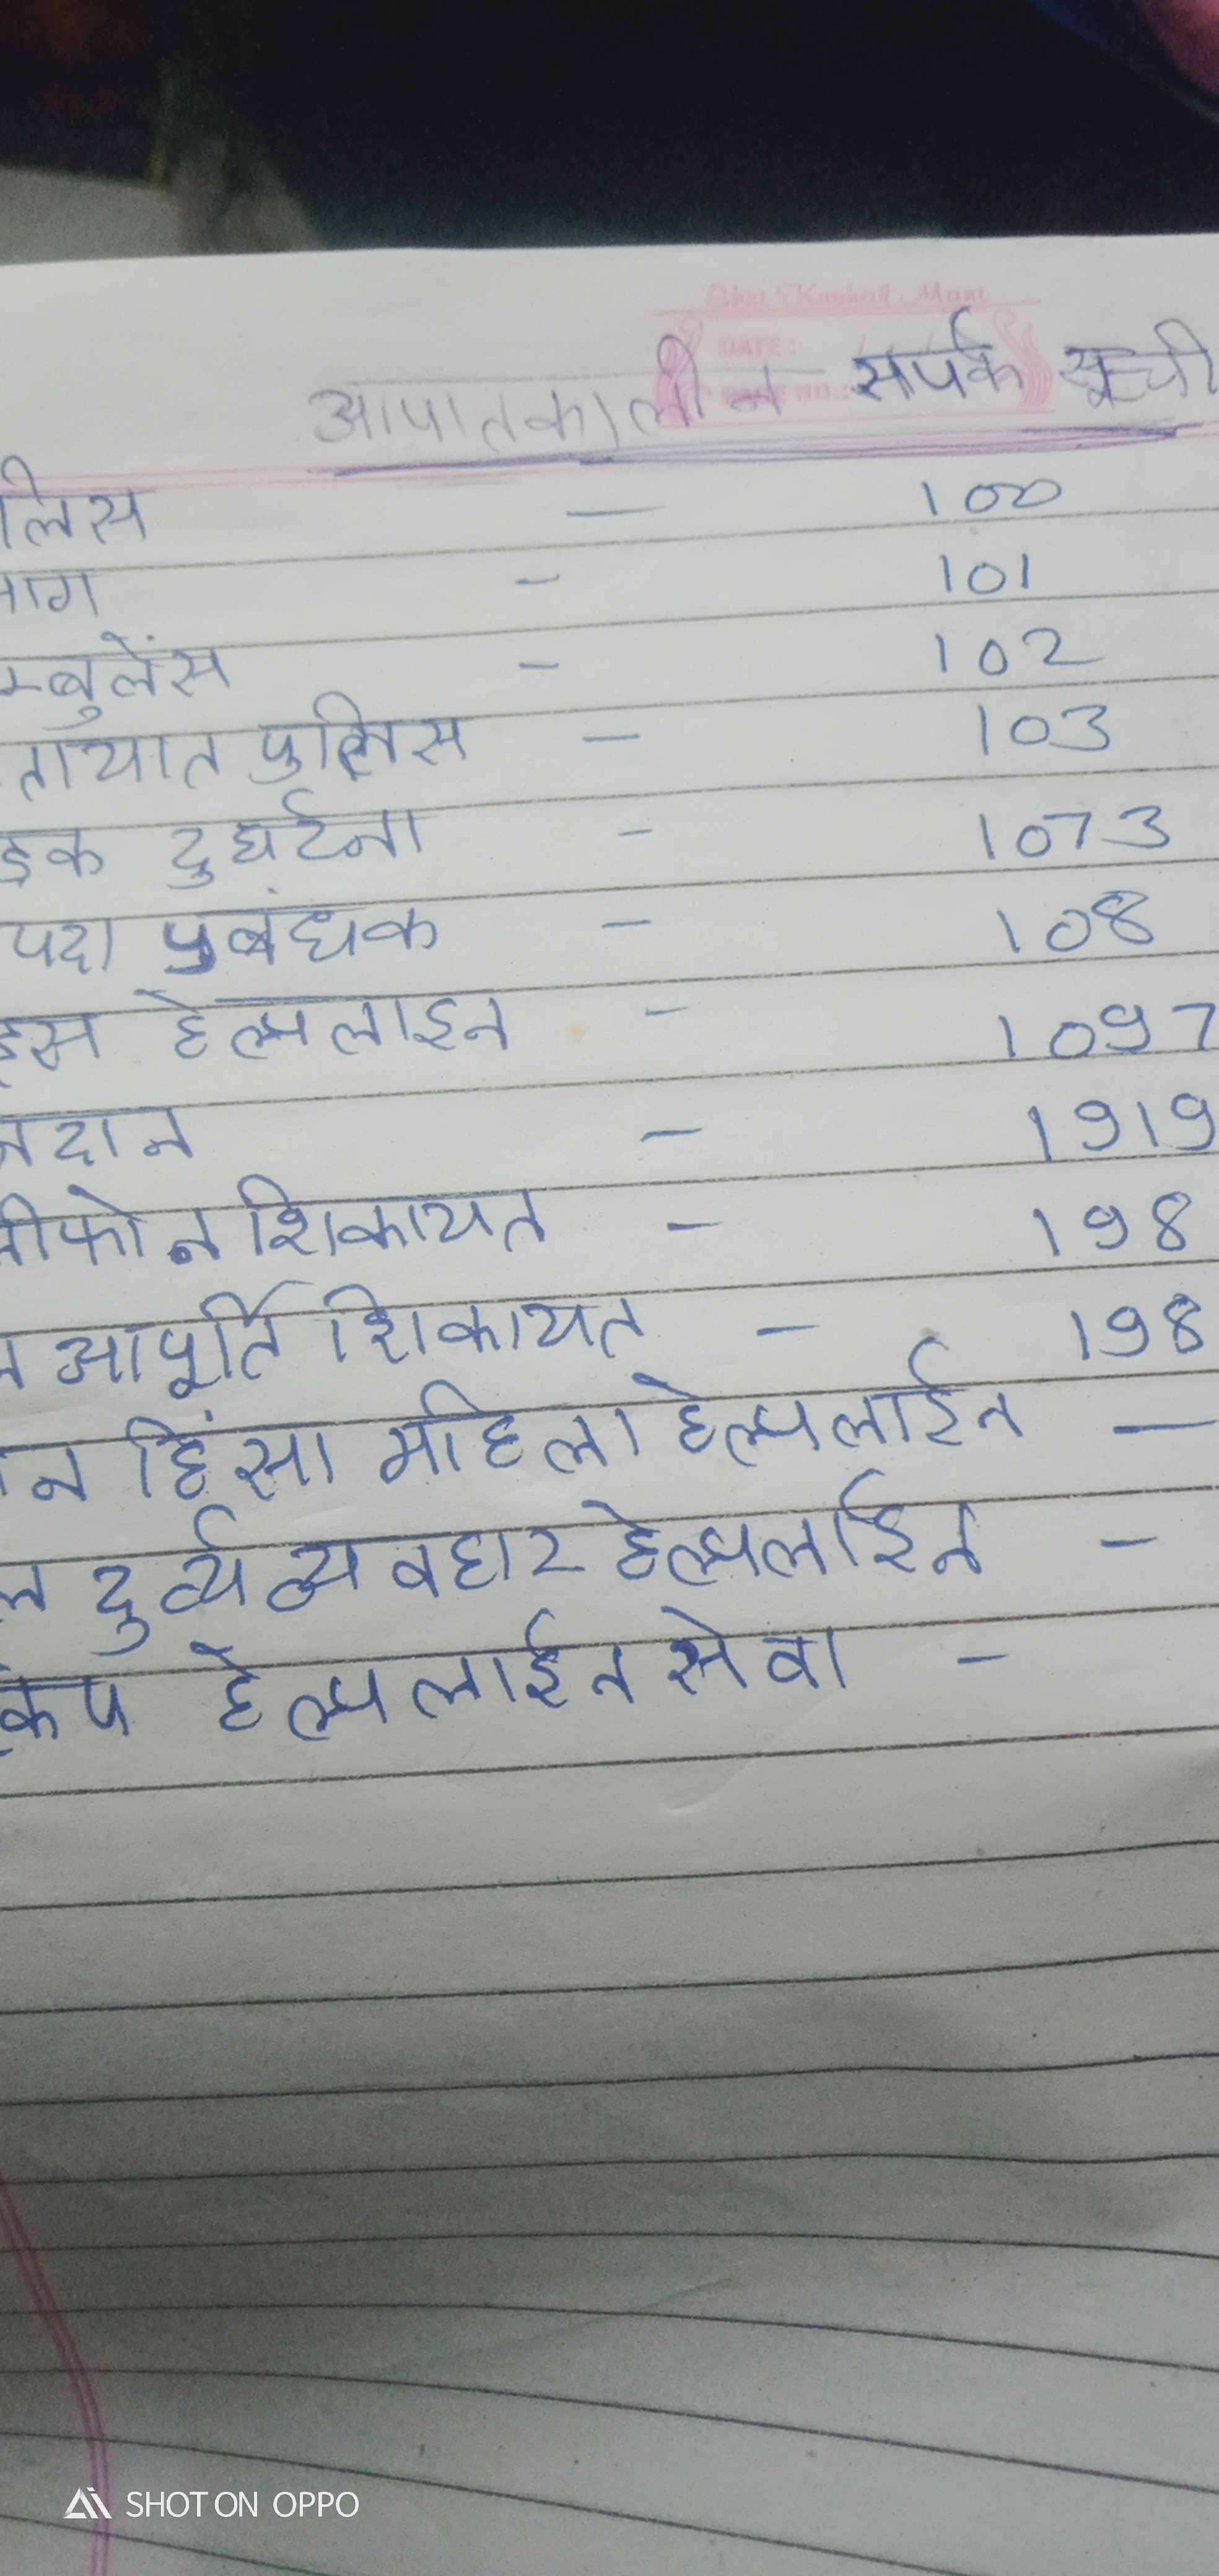 Shri Krushali Mani
DATE:
PAGE NO.:
आपातकालीन सर्पक सूची
लिस — 100
ाग - 101
म्बुलेंस - 102
तायात पुलिस - 103
ड़क दुर्घटना - 1073
पदा प्रबंधक - 108
इस हेल्पलाइन - 1097
नदान - 1919
लीफोन शिकायत - 198
ल आपूर्ति शिकायत - 198
न हिंसा महिला हेल्पलाईन —
ल दुर्व्यव्यवहार हेल्पलाईन -
कप हेल्पलाईन सेवा -
SHOT ON OPPO